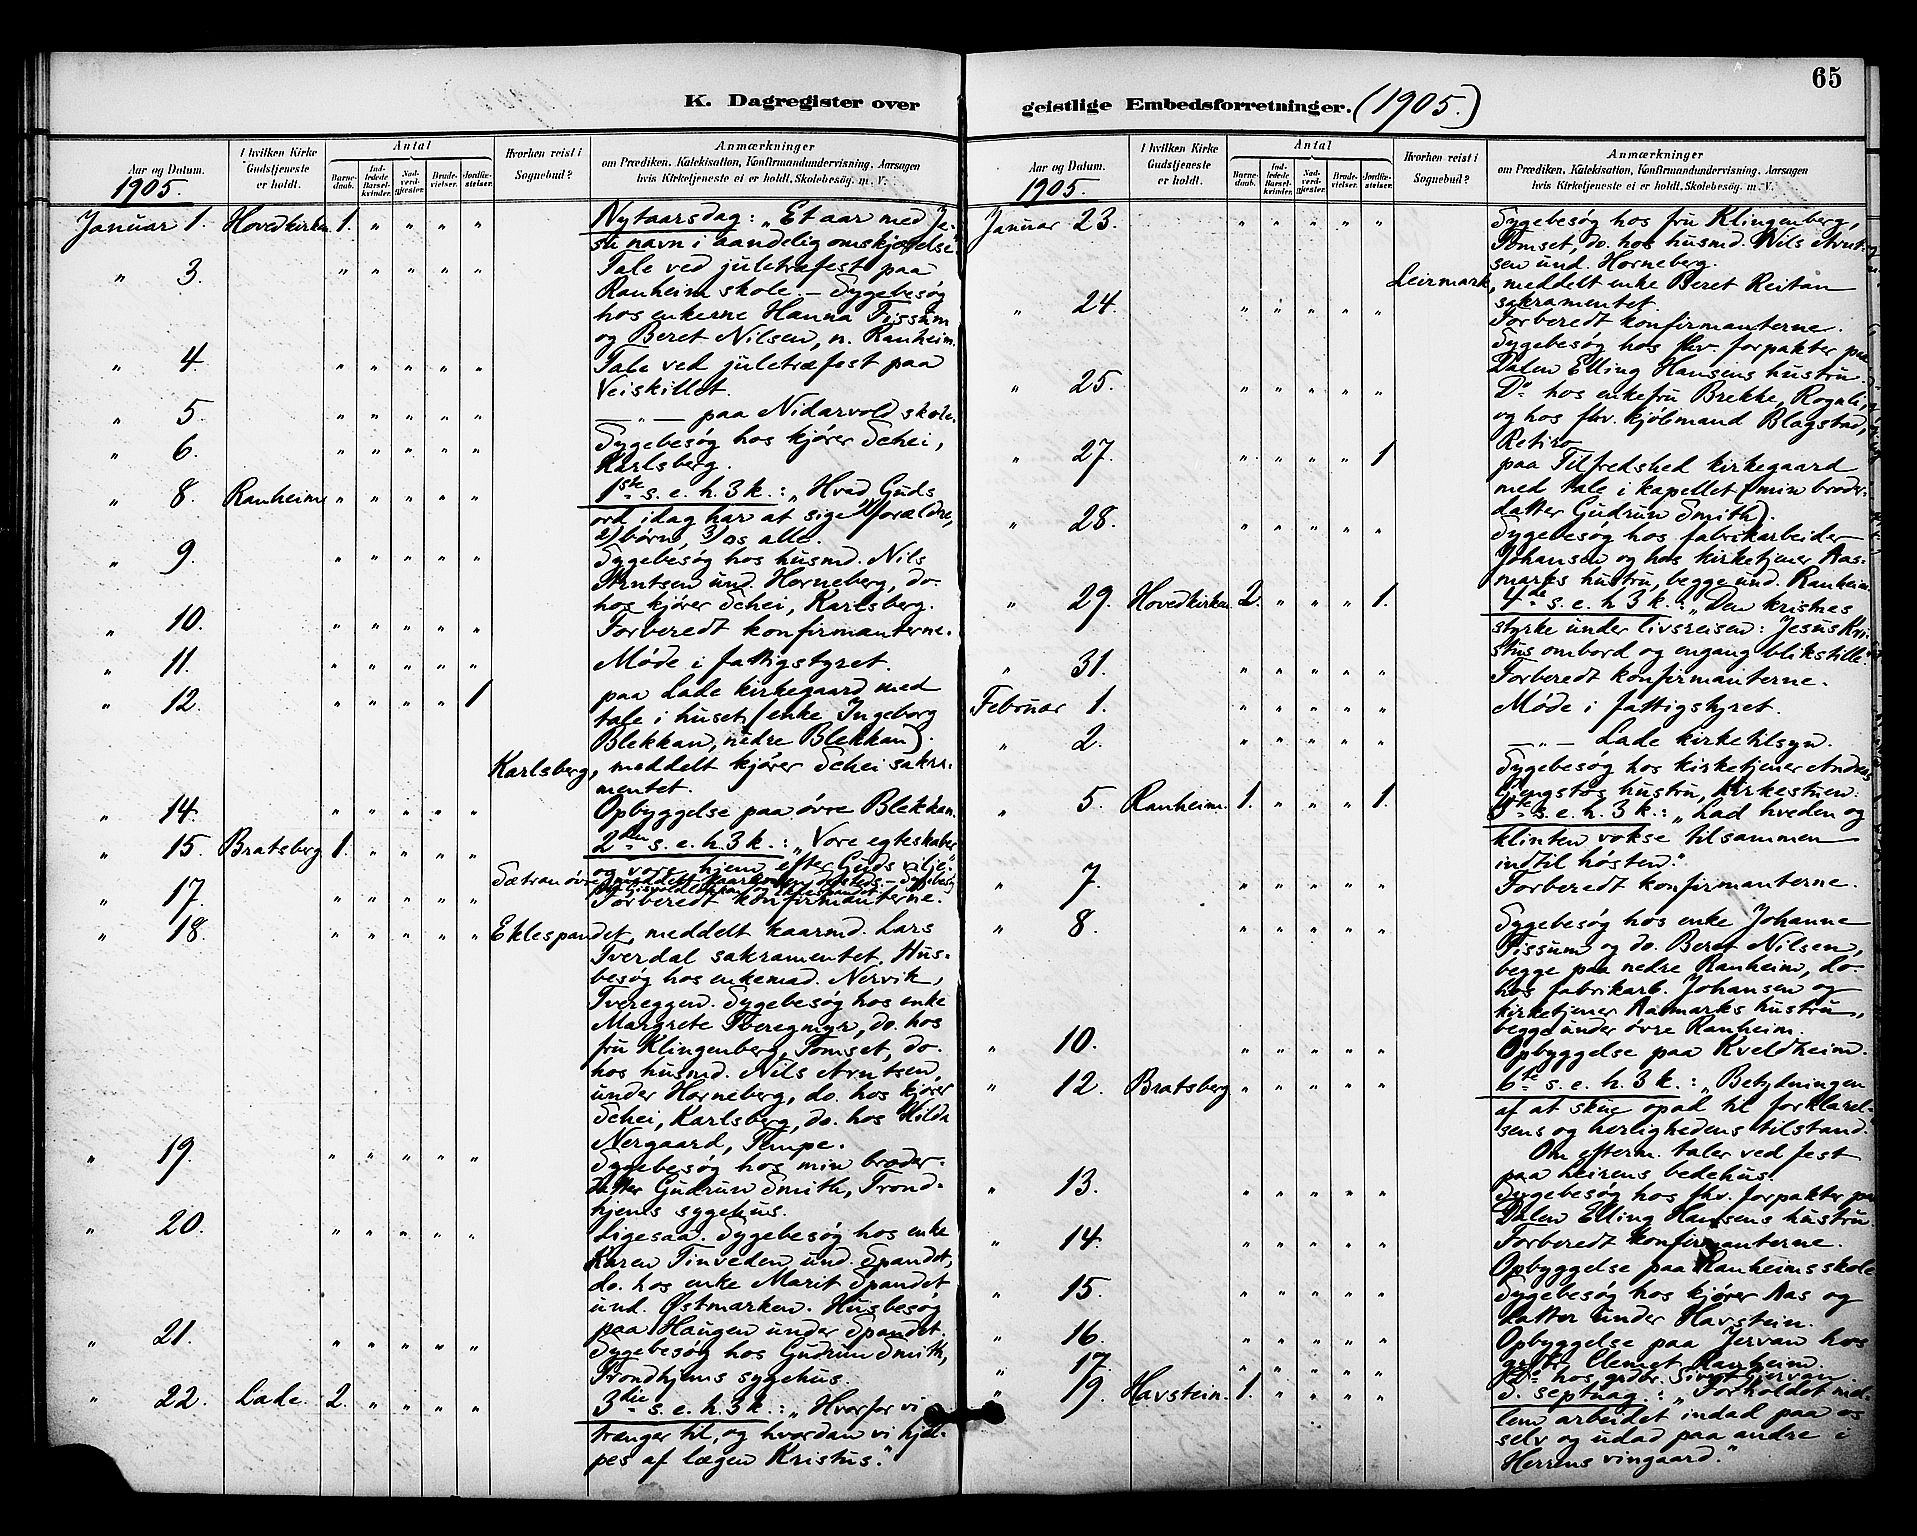 65
K. Dagregister over geistlige Embedsforretninger. (1905.)
Aar og Datum.
1905.
I hvilken Kirke Gudstjeneste er holdt.
Antal
Barnedaab.
Indledede Barselkvinder.
Nadverdgjester.
Brudevielser.
Jordfæstelser.
Hvorhen reist i Sognebud?
Anmærkninger
om Prædiken, Katekisation, Konfirmandundervisning, Aarsagen
hvis Kirketjeneste ei er holdt, Skolebesøg. m. V.
Januar 1. Hovedkirken 1. " " " " Nytaarsdag: „Et aar med Je-
su navn i aandelig omskjærelse".
" 3. " " " " " Tale ved juletræfest paa
Ranheim skole. – Sygebesøg
hos enkerne Hanna Fissum
og Beret Nilsen, n. Ranheim.
" 4 " " " " " Tale ved juletræfest paa
Veiskillet.
" 5. " " " " " — " — paa Nidarvold skole.
" 6. " " " " " Sygebesøg hos kjører Schei,
Karlsberg.
" 8. Ranheim " " " " " 1ste s. e. h. 3 k.: „Hvad Guds
ord idag har at sige 1) forældre,
2) børn, 3) os alle.
" 9. " " " " " Sygebesøg hos husmd. Nils
Arntsen und. Horneberg, do.
hos kjører Schei, Karlsberg.
" 10. " " " " " Forberedt konfirmanterne.
" 11. " " " " " Møde i fattigstyret.
" 12. " " " " 1 paa Lade kirkegaard med
tale i huset (enke Ingeborg
Blekkan, nedre Blekkan).
Karlsberg, meddelt kjører Schei sakra-
mentet.
" 14. " " " " " Opbyggelse paa øvre Blekkan.
" 15. Bratsberg 1. " " " " 2den s. e. h. 3 k.: „Vore egteskaber
og vore hjem efter Guds vilje".
Sætran øvre, meddelt
" 17. " " " " " Forberedt konfirmanterne.
" 18. " " " " " Eklespandet, meddelt kaarmd. Lars
Tverdal sakramentet. Hus-
besøg hos enkemd. Nervik,
Tvereggen. Sygebesøg hos enke
Margrete Tveregmyr, do. hos
fru Klingenberg, Tomset, do.
hos husmd. Nils Arntsen,
under Horneberg, do. hos kjører
Schei, Karlsberg, do. hos Hilda
Nergaard, Tempe.
" 19. " " " " " Sygebesøg hos min broder-
datter Gudrun Smith, Trond-
hjems sygehus.
" 20. " " " " " Ligesaa. Sygebesøg hos enke
Karen Tinveden und. Spandet,
do. hos enke Marit Spandet
und. Østmarken. Husbesøg
paa Haugen under Spandet.
" 21. " " " " " Sygebesøg hos Gudrun Smith,
Trondhjems sygehus.
" 22. Lade. 2. " " " " 3die s. e. h. 3 k.: „Hvorfor vi
trænger til, og hvordan vi hjæl-
pes af lægen Kristus."
Aar og Datum.
1905.
I hvilken Kirke Gudstjeneste er holdt.
Antal
Barnedaab.
Indledede Barselkvinder.
Nadverdgjester.
Brudevielser.
Jordfæstelser.
Hvorhen reist i Sognebud?
Anmærkninger
om Prædiken, Katekisation, Konfirmandundervisning, Aarsagen
hvis Kirketjeneste ei er holdt, Skolebesøg. m. V.
Januar 23. " " " " " Sygebesøg hos fru Klingenberg,
Tomset, do. hos husmd. Nils Arnt-
sen und. Horneberg.
Leirmark, meddelt enke Beret Reitan
sakramentet.
" 24. " " " " " Forberedt konfirmanterne.
Sygebesøg hos fhv. forpakter paa
Dalen Elling Hansens hustru.
" 25. " " " " " Do hos enkefru Brekke, Rognli,
og hos fhv. kjøbmand Blagstad,
Retiro.
" 27. " " " " 1 paa Tilfredshed kirkegaard
med tale i kapellet (min broder-
datter Gudrun Smith).
" 28. " " " " " Sygebesøg hos fabrikarbeider
Johansen og hos kirketjener Aas-
marks hustru, begge und. Ranheim.
" 29. Hovedkirken 2. " " " 1. 4de s. e. h. 3 k.: „Den kristnes
styrke under livsreisen: Jesus Kri-
stus ombord og engang blikstille".
" 31. " " " " " Forberedt konfirmanterne.
Februar 1. " " " " " Møde i fattigstyret.
" 2. " " " " " — " — Lade kirketilsyn.
Sygebesøg hos kirketjener Andreas
hustru, Kirkestuen.
" 5. Ranheim. 1. " " " 1. 5te s. e. h. 3 k.: „Lad hveden og
klinten vokse tilsammen
indtil høsten."
" 7. " " " " " Forberedt konfirmanterne.
" 8. " " " " " Sygebesøg hos enke Johanne
Fissum og do. Beret Nilsen,
begge paa nedre Ranheim, do.
hos fabrikarb. Johansen og
kirketjener Aasmarks hustru,
begge under øvre Ranheim.
" 10. " " " " " Opbyggelse paa Kveldheim.
" 12. Bratsberg " " " " " 6te s. e. h. 3 k.: „Betydningen
af at skue opad til forklarel-
sens og herlighedens tilstand."
Om efterm. taler ved fest
paa Leirens bedehus.
" 13. " " " " " Sygebesøg hos fhv. forpakter paa
Dalen Elling Hansens hustru.
" 14. " " " " " Forberedt konfirmanterne.
Opbyggelse paa Ranheims skole
" 15. " " " " " Sygebesøg hos kjører Aas og
datter under Havstein.
" 16. " " " " " Opbyggelse paa Jervan hos
grdbr. Clemet Ranheim.
" 17. " " " " " Do hos grdbr. Sivert Jervan.
" 19. Havstein. 1. " " " " S. septuag.: „Forholdet mel-
lem arbeidet indad paa os
selv og udad paa andre i
Herrens vingaard."